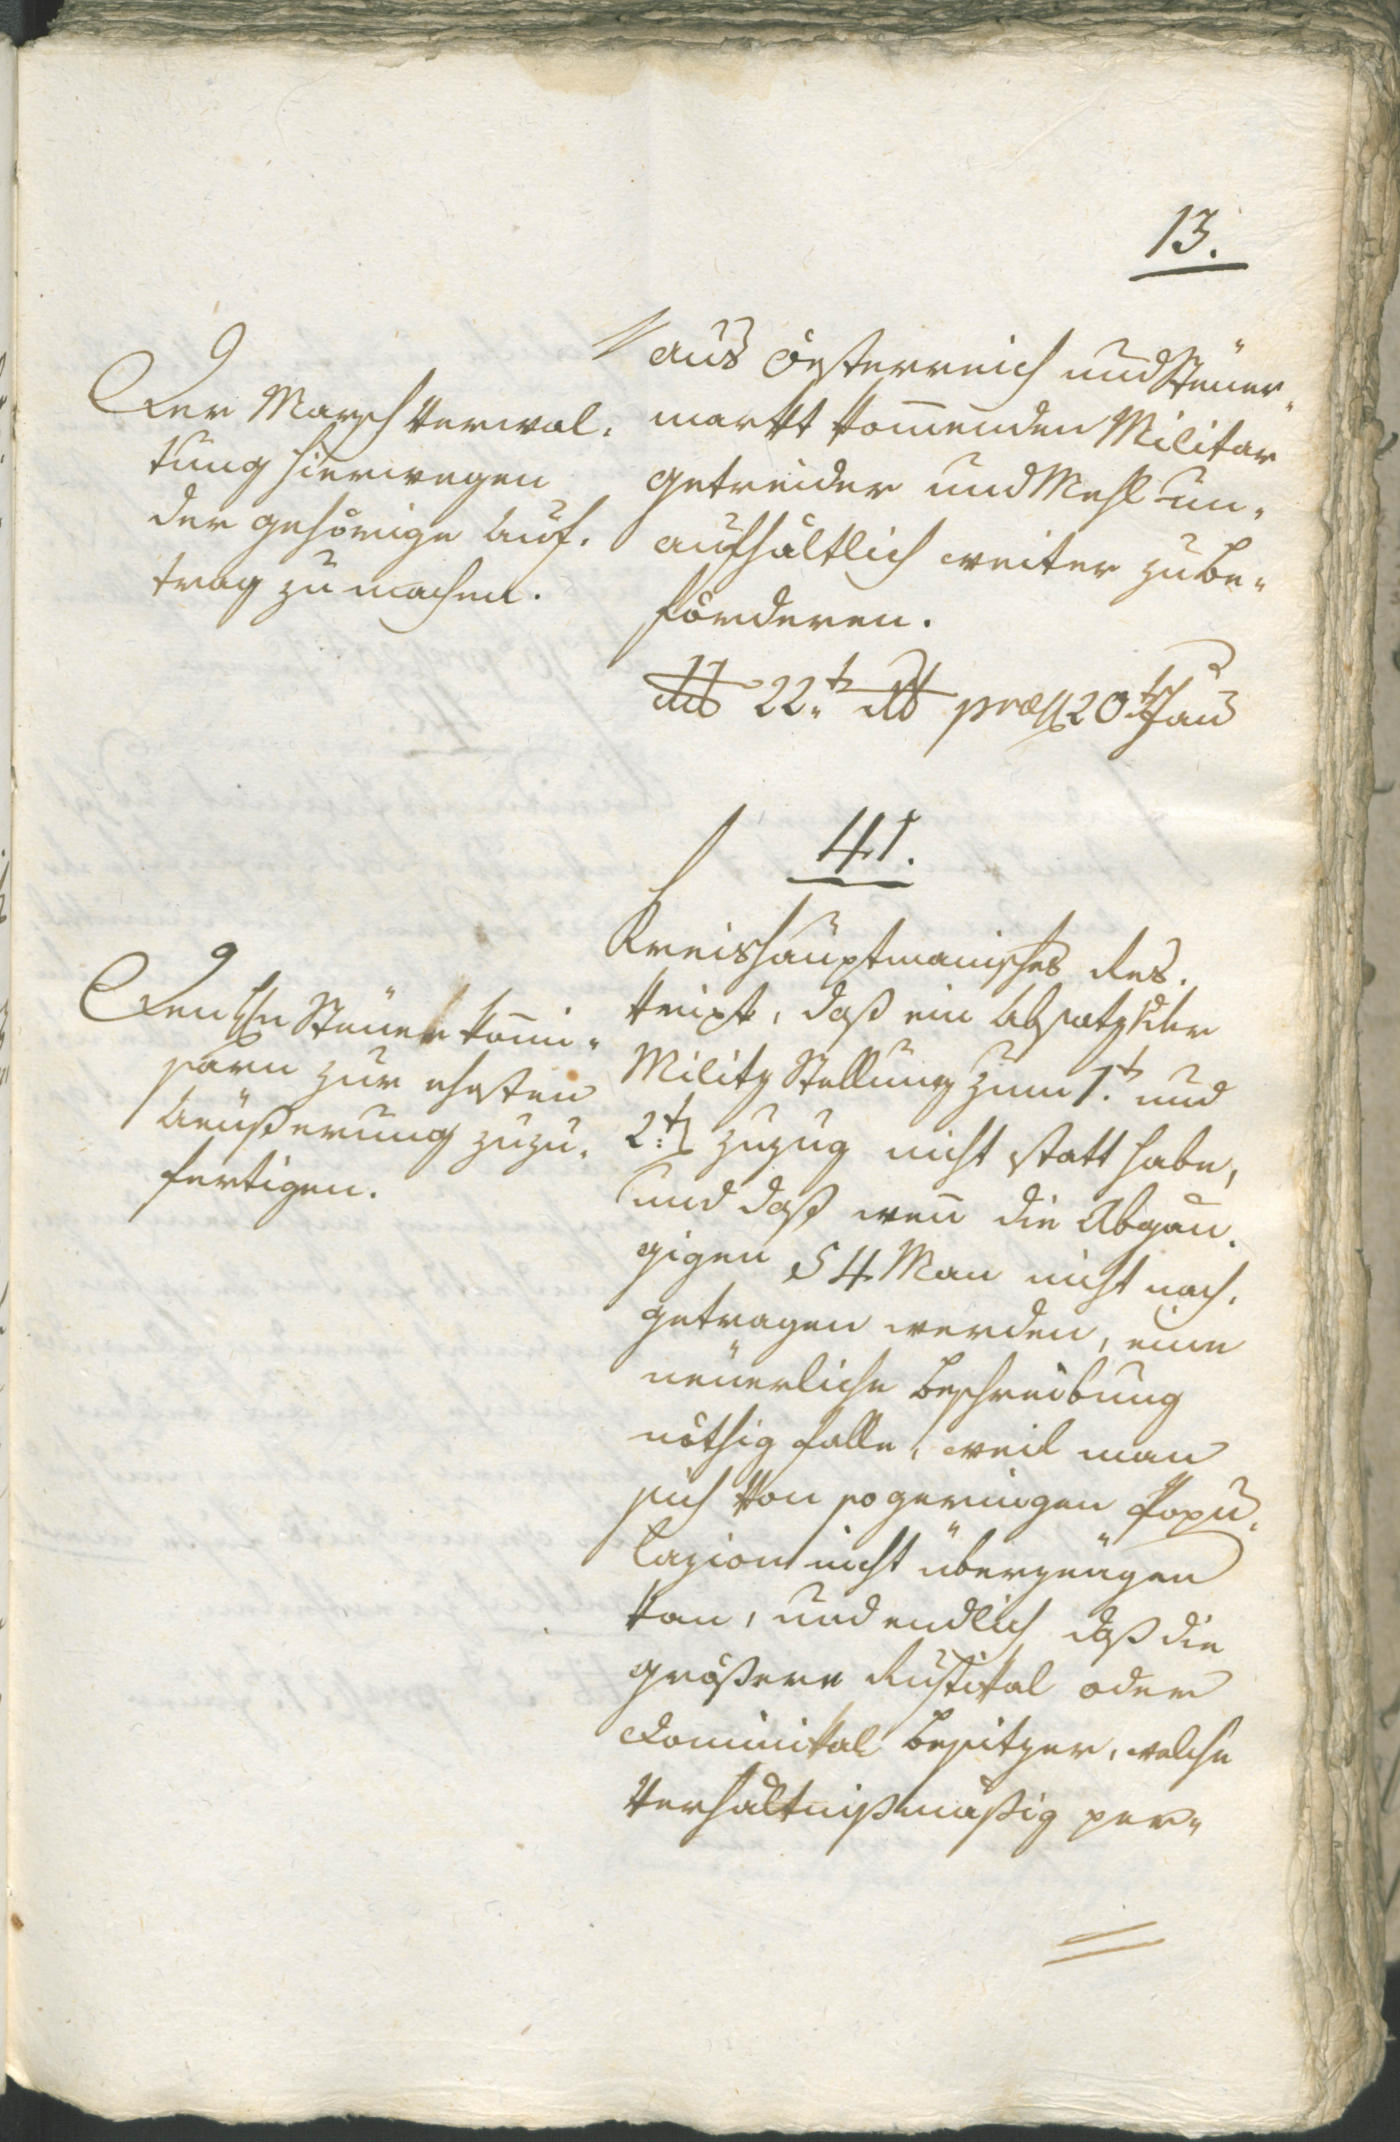 13.
Der Marsch Verwal-
tung hierwegen
der gehörige Auf-
trag zu machen.
aus Oesterreich und Steüer-
markt kom̄enden Militar
getreider und Mehl un-
aufhältlich weiter zu be-
förderen.
dto 22t. dto præs 20t Jan
41.
Den H Steüer Kom̄i-
sarn zur ehesten
Aeüßerung zuzu-
fertigen.
Kreishauptmanisches Res-
kript, daß ein Absatz der
Militz Stellung zum 1.t und
2:t Zuzug nicht statt habe,
und daß wen̄ die Abgän-
gigen 54 Man nicht nach-
getragen werden, eine
neüerliche Beschreibung
nöthig falle, weil man
sich von so geringen Popu-
lazion nicht überzeügen
kan, und endlich daß die
größere Rustikal oder
Dominikal Besitzer, welche
Verhältnißmäßig per-